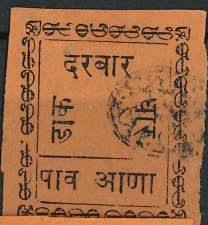 दरबार
डाक
धार
पाव आणा